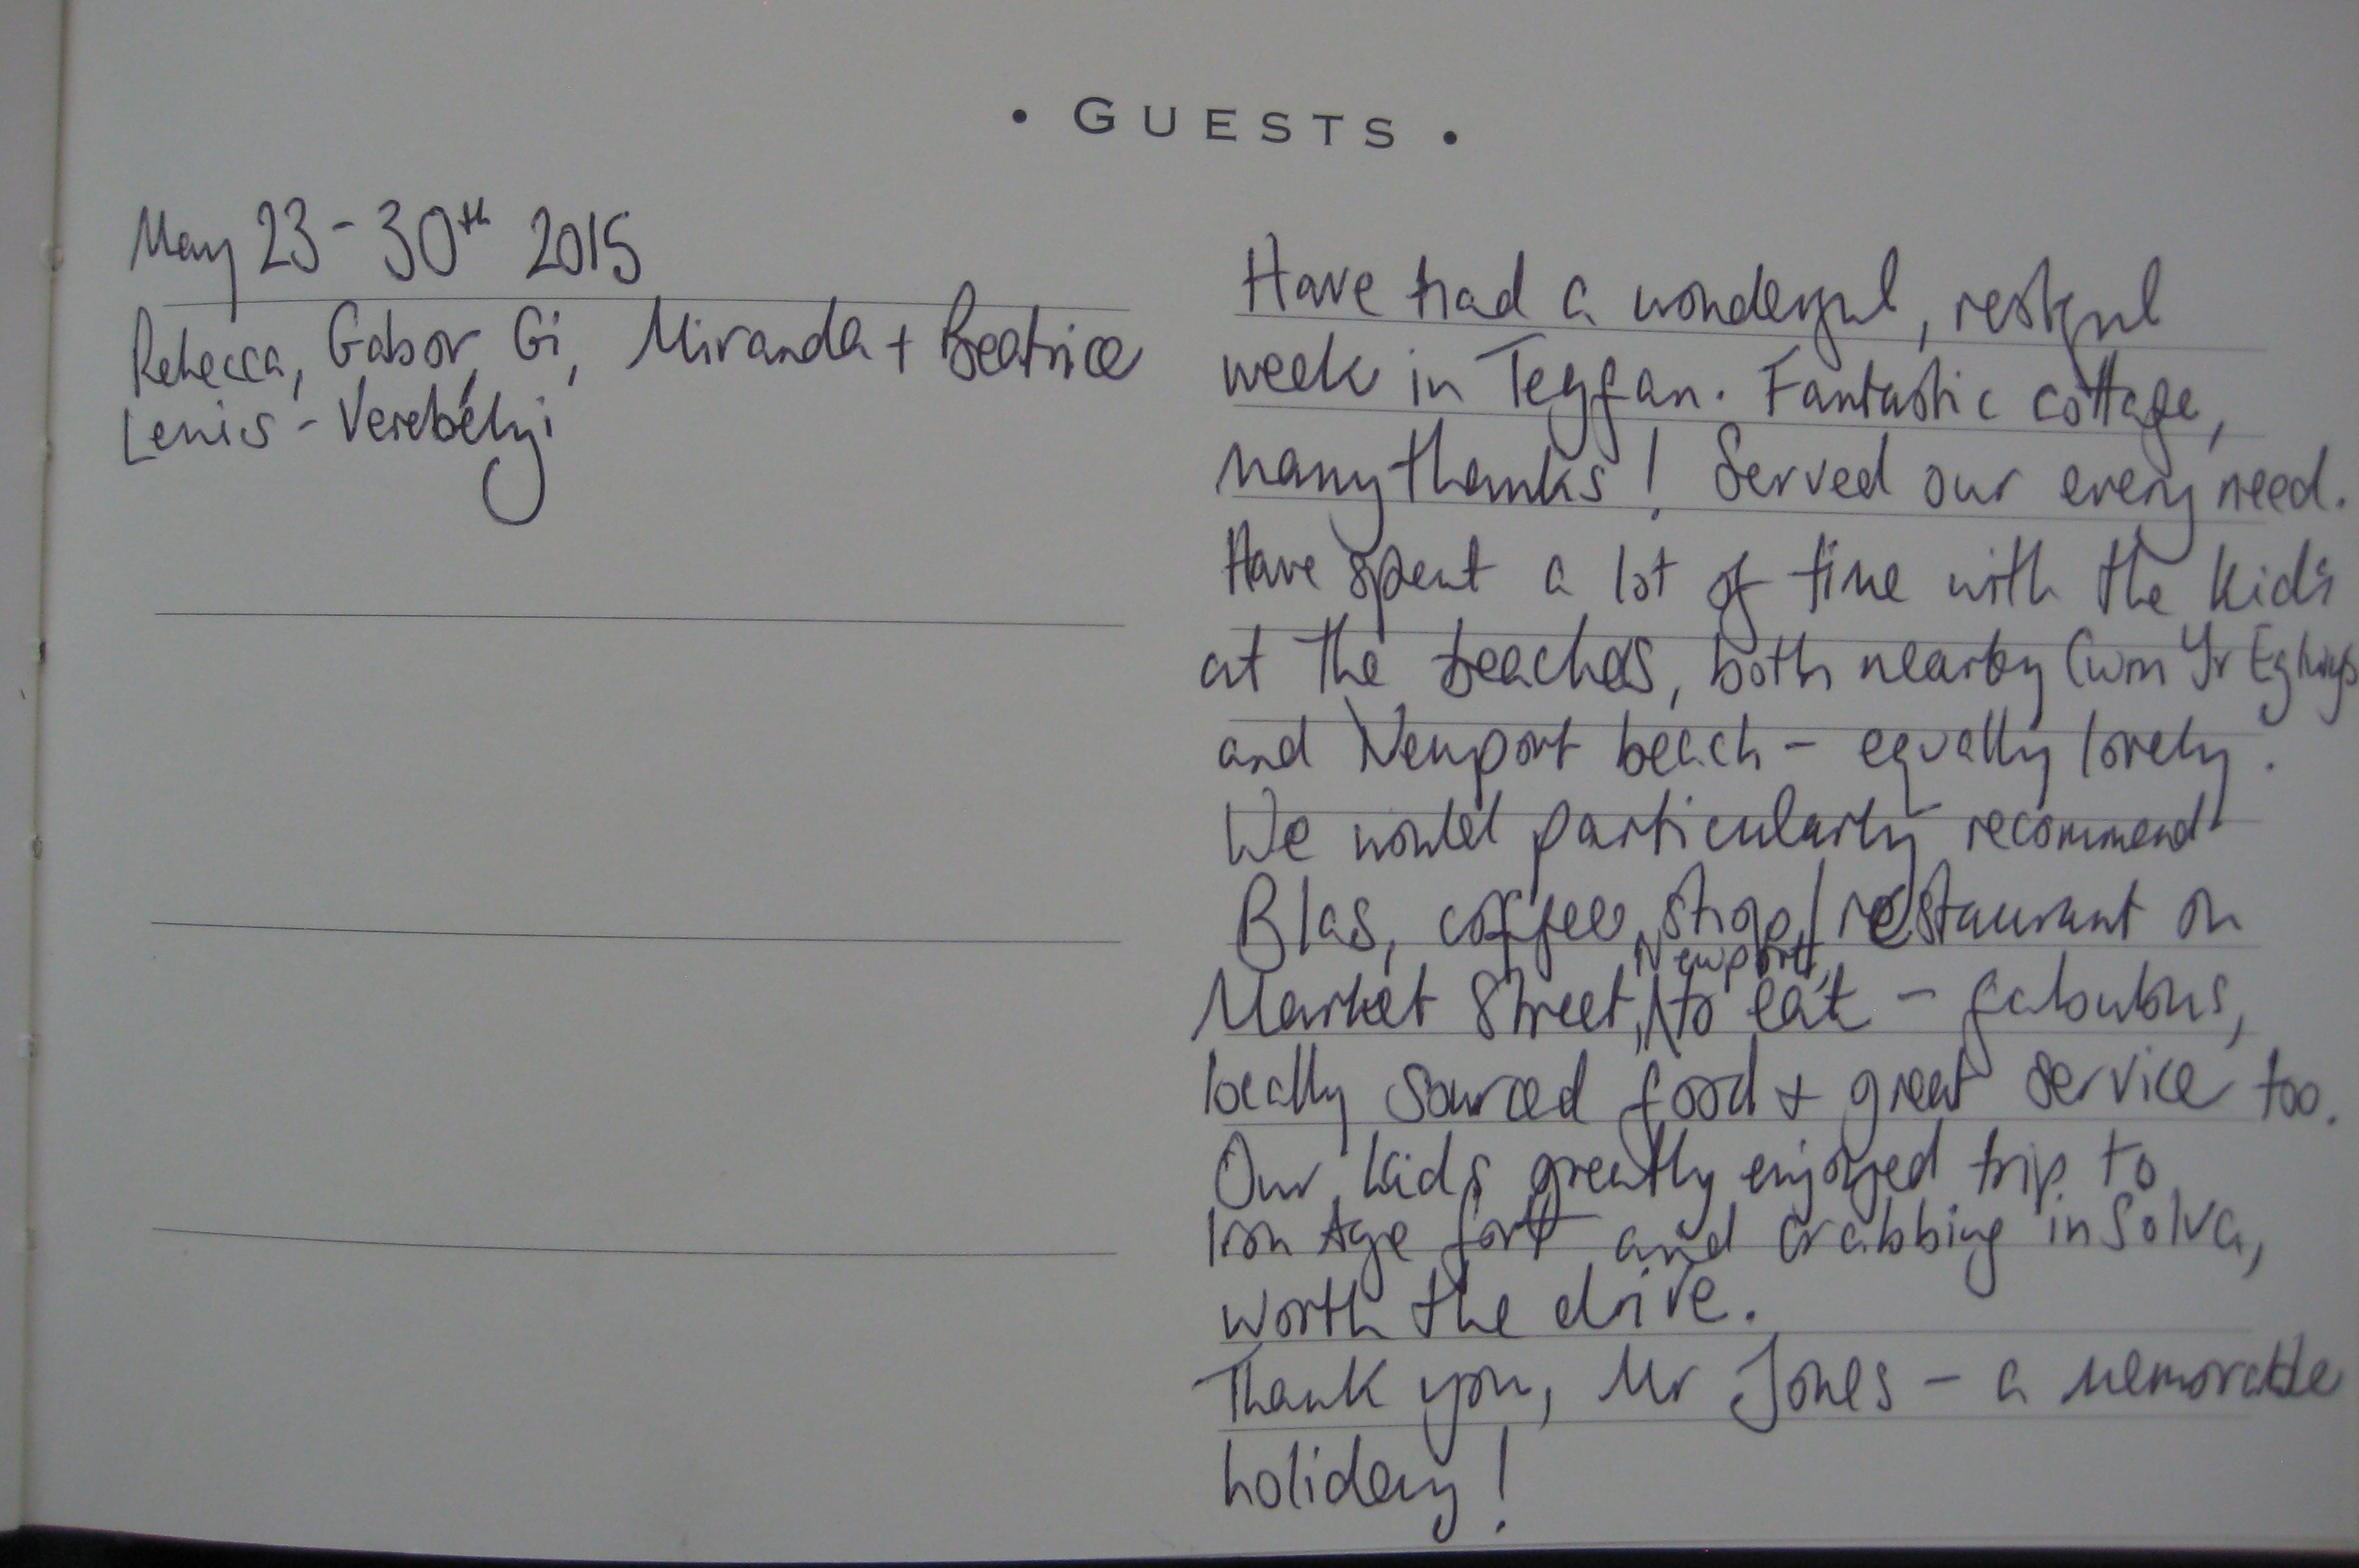 • GUESTS •
May 23 - 30th 2015
Rebecca, Gabor, Gi, Miranda + Beatrice
Lewis - Verebélyi
Have had a wonderful, restful
week in Tegfan. Fantastic cottage,
many thanks! Served our every need.
Have spent a lot of time with the kids
at the beaches, both nearby Cwm Yr Eglwys
and Newport beach - equally lovely.
We would particularly recommend
Blas, coffee shop/restaurant on
Market Street, Newport, to eat - fabulous,
locally sourced food + great service too.
Our kids greatly enjoyed trip to
Iron Age fort and crabbing in Solva,
worth the drive.
Thank you, Mr Jones - a memorable
holiday!